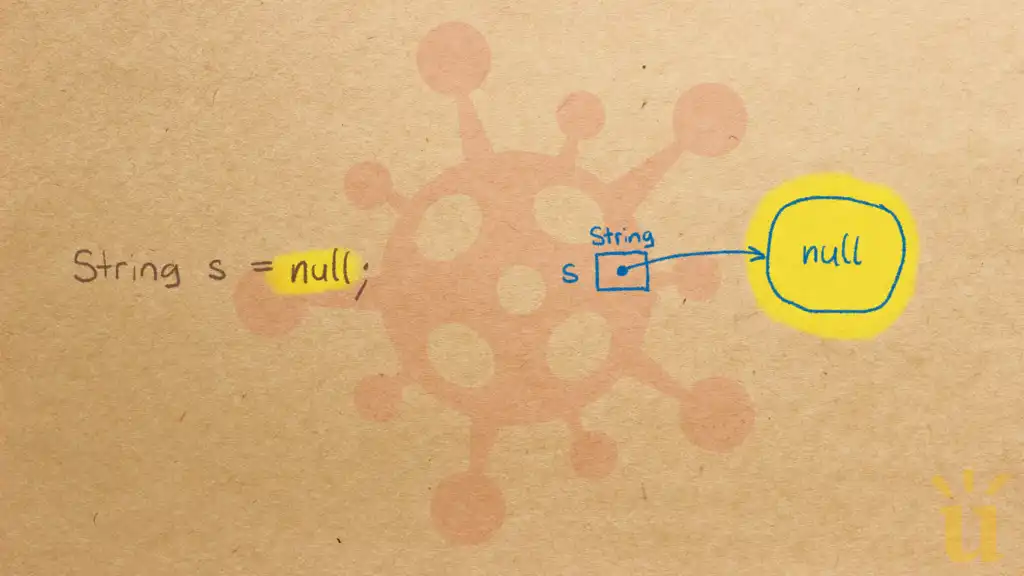 String s = null;
String
s
null
u